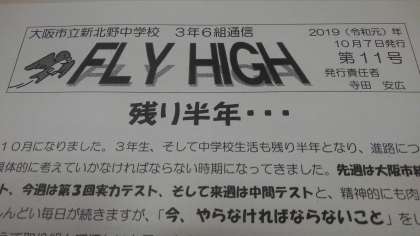 大阪市立新北野中学校　3年6組通信
FLY HIGH
2019(令和元)年
10月7日発行
第11号
発行責任者
寺田　安広
残り半年・・・
10月になりました。3年生、そして中学校生活も残り半年となり、進路につ
体的に考えていかなければならない時期になってきました。先週は大阪市統
ト、今週は第3回実力テスト、そして来週は中間テストと、精神的にも肉
んどい毎日が続きますが、「今、やらなければならないこと」をし